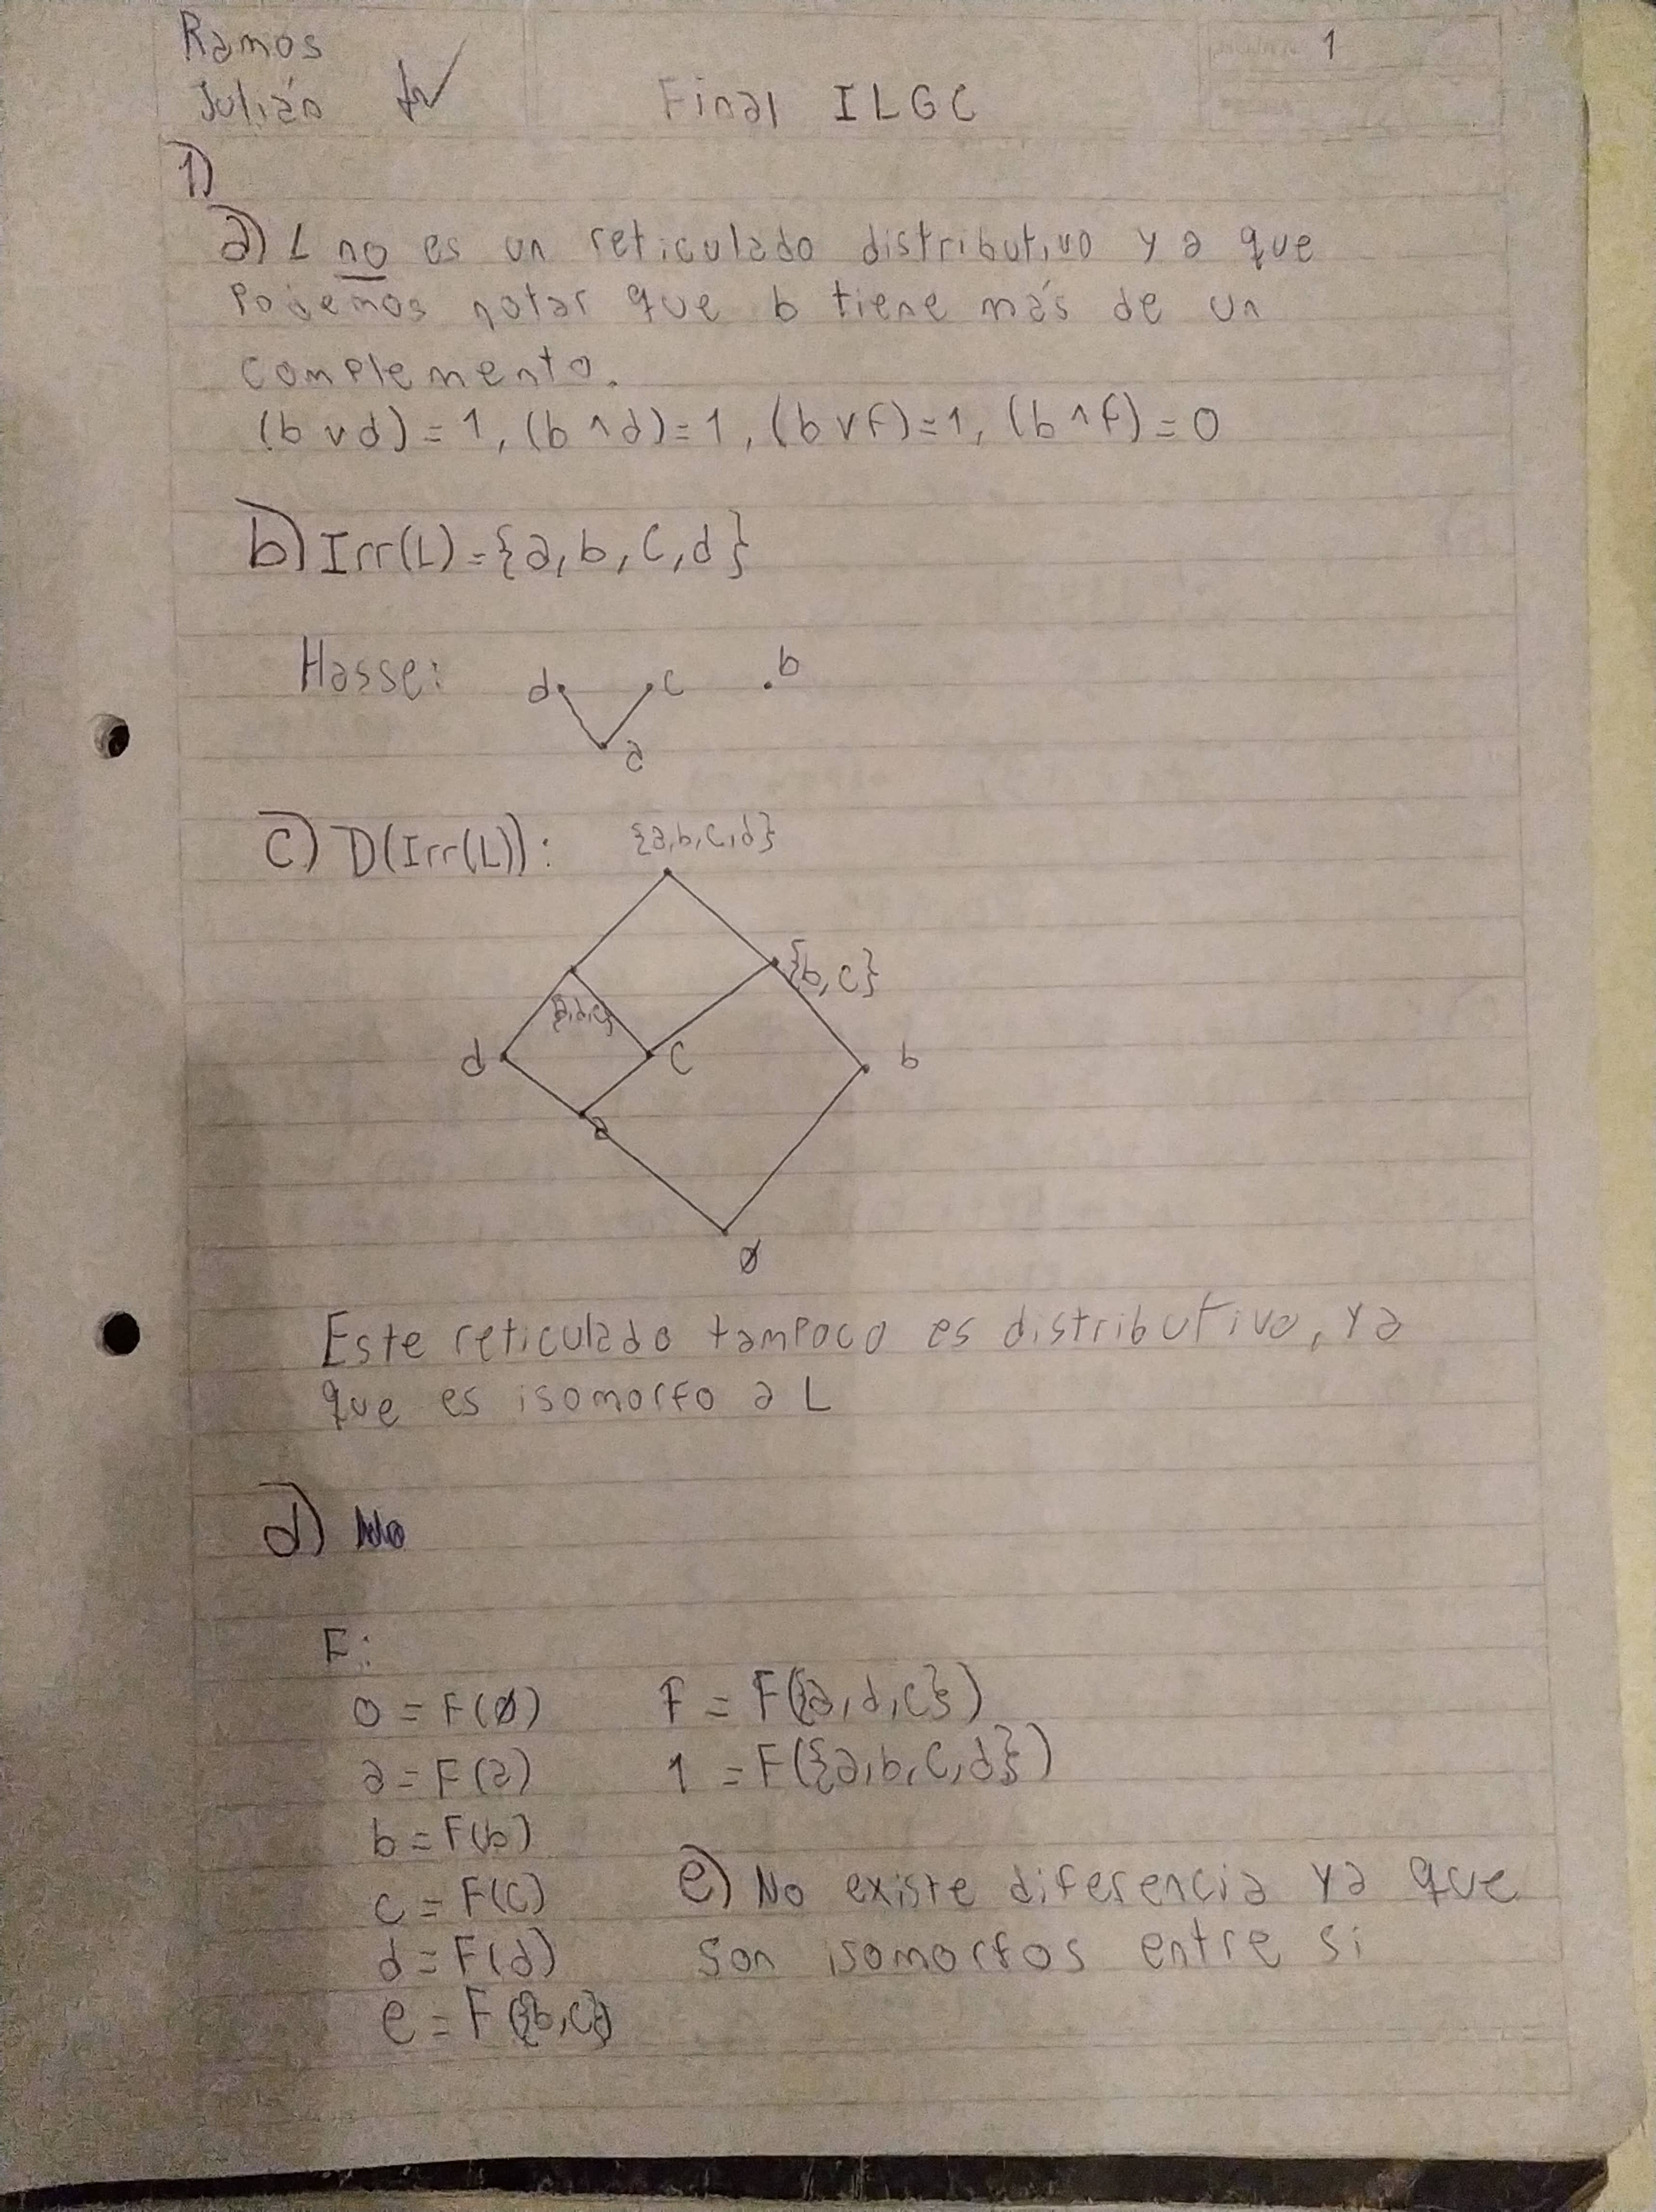 Ramos
Julián
1
Final ILGC
1)
a) L no es un reticulado distributivo ya que
Podemos notar que b tiene más de un
complemento.
(b ∨ d) = 1, (b ∧ d) = 1, (b ∨ f) = 1, (b ∧ f) = 0
b) Irr(L) = {a, b, c, d}
Hasse:
d c b
a
c) D(Irr(L)):
{a,b,c,d}
{b,c}
{a,d,c}
d c b
a
∅
Este reticulado tampoco es distributivo, ya
que es isomorfo a L
d)
F:
0 = F(∅) f = F({a,d,c})
a = F(a) 1 = F({a,b,c,d})
b = F(b)
c = F(c) e) No existe diferencia ya que
d = F(d) son isomorfos entre si
e = F({b,c})